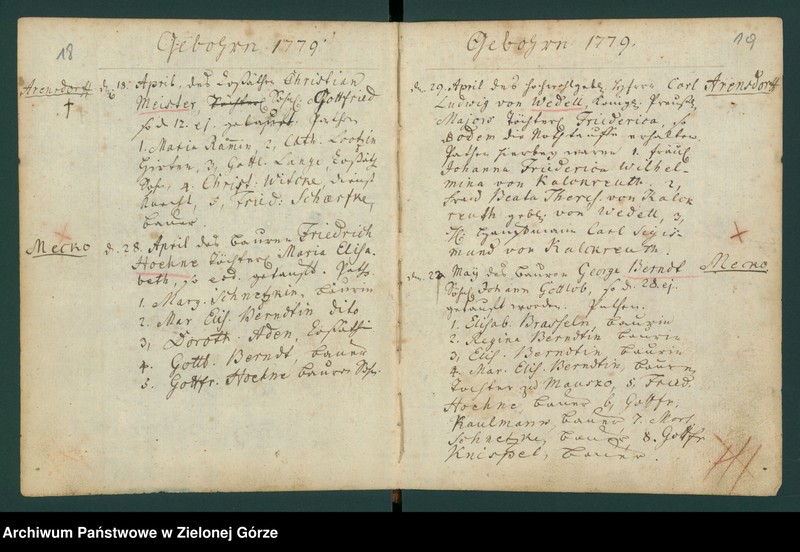 18
Gebohrn 1779.
Arensdorff
†
d. 18. April, des Coßäthen Christian
Meister Töchterl. Söhnl. Gottfried
so d. 12. ej. getauft. Pathen
1. Maria Ramin, 2, Cath.
Hirten, 3, Gottl. Lange, Coßäth
4. Christ. Witcke, dienst
Knecht, 5, Fried. Schaerfke,
bauer.
Mecko
d. 28. April des bauren Friedrich
Hoehne Töchterl. Maria Elisa-
beth, so eod. getauft. Path.
1. Marg. Schnetzkin, baurin
2. Mar. Elis. Berndtin dito
3, Doroth. Aden, Coßäthin
4. Gottl. Berndt, bauer
5. Gottfr. Hoehne bauers Sohn.
19
Gebohrn 1779.
Arensdorff
d. 29. April des Hochwohlgeb. Herrn Carl
Ludwig von Wedell, Königl. Preuß.
Major Töchterl. Friederica, so
eodem die Nothtaufe erhalten.
Pathen hierbey waren 1. Fräul.
Johanna Friederica Wilhel-
mina von Kalckreuth. 2,
Frau Beata Theres. von Kalck
reuth gebl. von Wedell, 3,
H. Hauptmann Carl Sigis-
mund von Kalckreuth.
Mecko
d. 27 May des bauren George Berndt
Söhnl. Johann Gottlob, so d. 28. ej.
getauft worden. Pathen.
1. Elisab. Brasseln, baurin
2. Regina Berndtin baurin
3, Elis. Berndtin baurin
4. Mar. Elis. Berndtin, bauern
Tochter zu Mauszko, 5. Fried.
Hoehne, bauer 6, Gottfr.
Kaulmann, bauer, 7. Mart.
Schnetzke, bauer, 8. Gottfr.
Knispel, bauer.
Archiwum Państwowe w Zielonej Górze